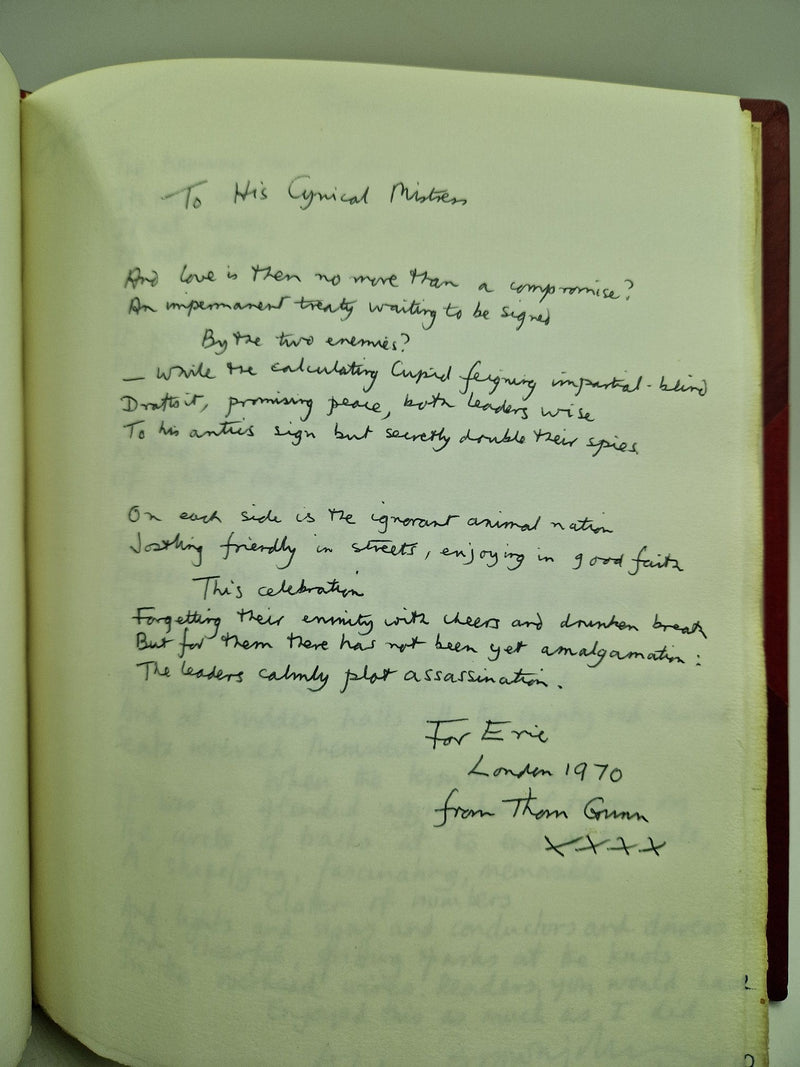 To His Cynical Mistress
And love is then no more than a compromise?
An impermanent treaty waiting to be signed
By the two enemies?
— While the calculating Cupid feigning impartial-blind
Drafts it, promising peace, both leaders wise
To his antics sign but secretly double their spies.
On each side is the ignorant animal nation
Jostling friendly in streets, enjoying in good faith
This celebration
Forgetting their enmity with cheers and drunken breath
But for them there has not been yet amalgamation:
The leaders calmly plot assassination.
For Eric
London 1970
from Thom Gunn
XXXX